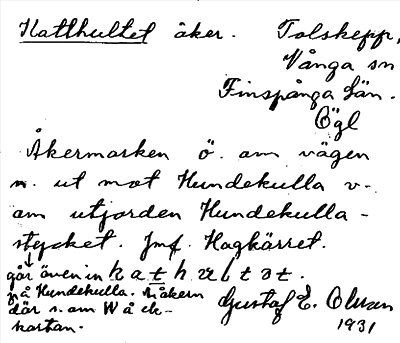 Katthultet åker. Tolskepp,
Vånga sn
Finspånga län.
Ögl
Åkermarken ö. om vägen
n. ut mot Hundekulla v.
om utjorden Hundekulla-
stycket. Jmf. Hagkärret.
går även in kathultət.
på Hundekulla. åkern
där n. om Wåck-
kartan.
Gustaf E. Olsson
1931